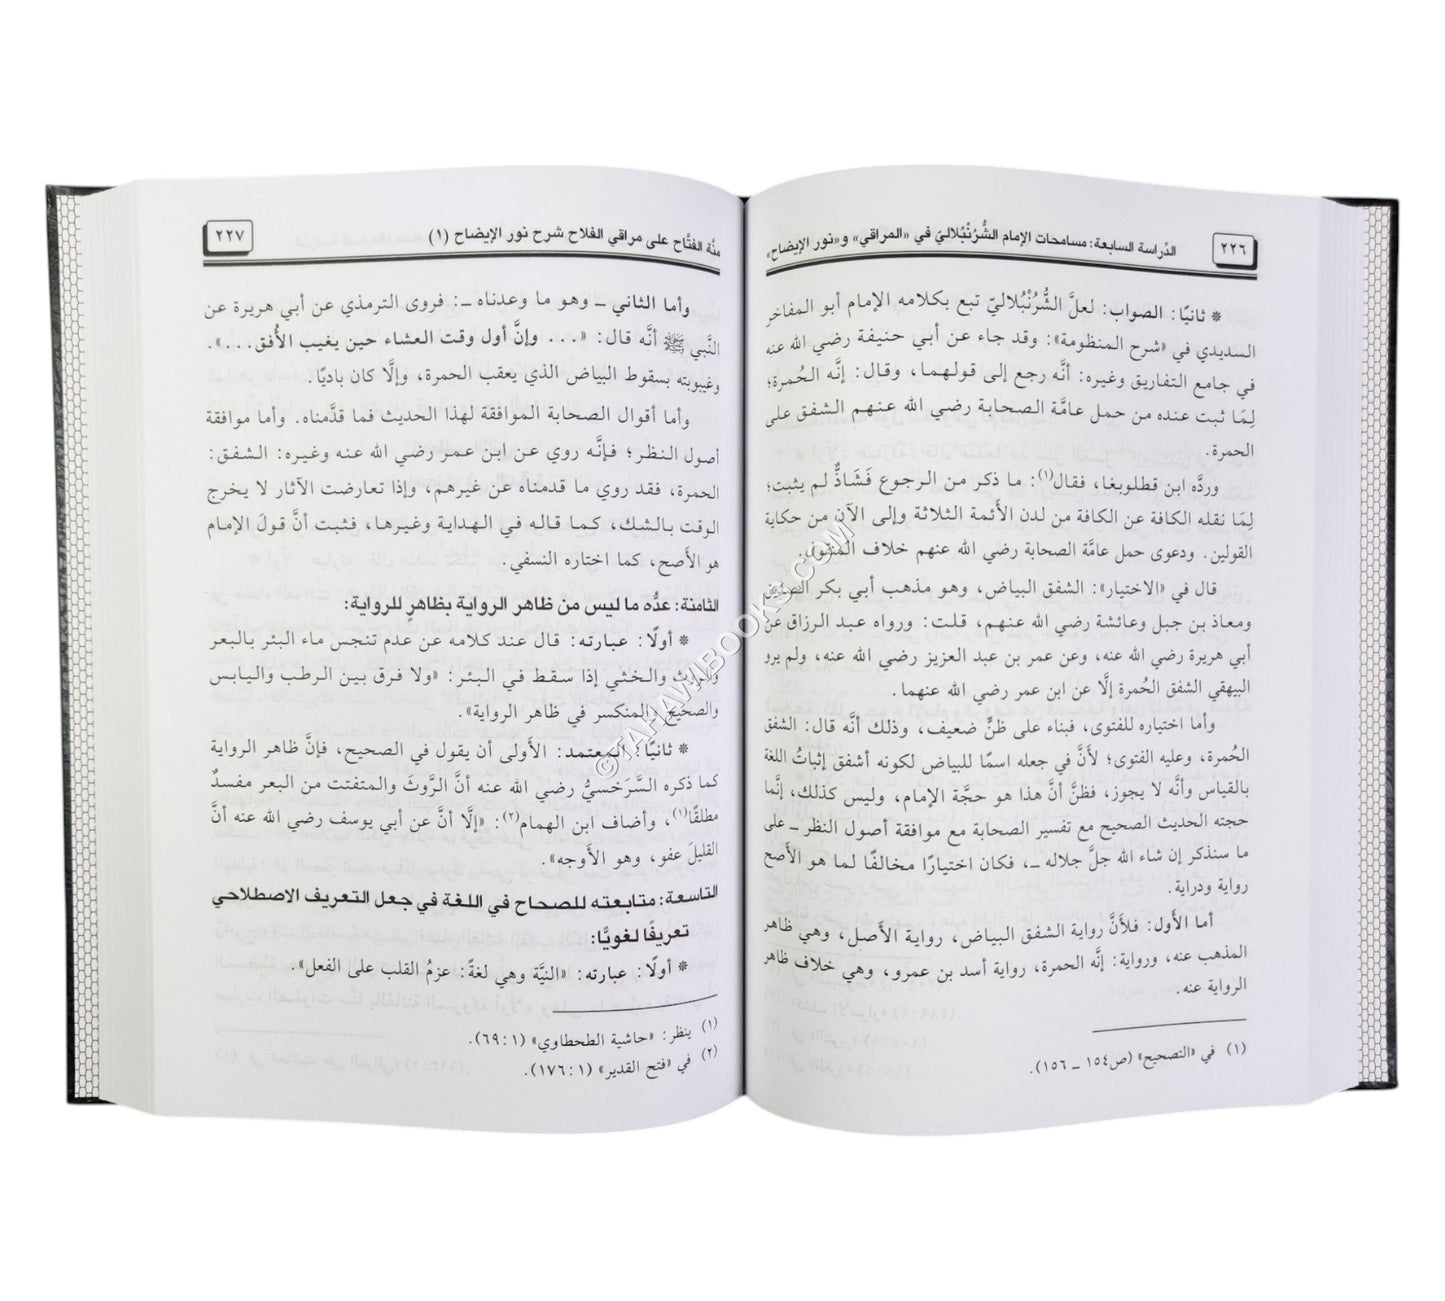 ٢٢٦
الدِّراسة السابعة: مسامحات الإمام الشُّرُنْبُلاليّ في «المراقي» و«نور الإيضاح»
* ثانيًا: الصواب: لعلَّ الشُّرُنْبُلاليّ تبع بكلامه الإمام أبو المفاخر
السديدي في «شرح المنظومة»: وقد جاء عن أبي حنيفة رضي الله عنه
في جامع التفاريق وغيره: أنَّه رجع إلى قولهما، وقال: إنَّه الحُمرة؛
لِمَا ثبت عنده من حمل عامَّة الصحابة رضي الله عنهم الشفق على
الحمرة.
وردَّه ابن قطلوبغا، فقال(١): ما ذكر من الرجوع فَشَاذٌّ لم يثبت؛
لِمَا نقله الكافة عن الكافة من لدن الأئمة الثلاثة وإلى الآن من حكاية
القولين. ودعوى حمل عامَّة الصحابة رضي الله عنهم خلاف المنقول.
قال في «الاختيار»: الشفق البياض، وهو مذهب أبي بكر الصديق
ومعاذ بن جبل وعائشة رضي الله عنهم، قلت: ورواه عبد الرزاق عن
أبي هريرة رضي الله عنه، وعن عمر بن عبد العزيز رضي الله عنه، ولم يرو
البيهقي الشفق الحُمرة إلَّا عن ابن عمر رضي الله عنهما.
وأما اختياره للفتوى، فبناء على ظنٍّ ضعيف، وذلك أنَّه قال: الشفق
الحُمرة، وعليه الفتوى؛ لأنَّ في جعله اسمًا للبياض لكونه أشفق إثباتُ اللغة
بالقياس وأنَّه لا يجوز، فظنَّ أنَّ هذا هو حجَّة الإمام، وليس كذلك، إنَّما
حجته الحديث الصحيح مع تفسير الصحابة مع موافقة أصول النظر ـ على
ما سنذكر إن شاء الله جلَّ جلاله ـ، فكان اختيارًا مخالفًا لما هو الأصح
رواية ودراية.
أما الأول: فلأنَّ رواية الشفق البياض، رواية الأصل، وهي ظاهر
المذهب عنه، ورواية: إنَّه الحمرة، رواية أسد بن عمرو، وهي خلاف ظاهر
الرواية عنه.
(١) في «التصحيح» (ص١٥٤ ـ ١٥٦).
منَّة الفتَّاح على مراقي الفلاح شرح نور الإيضاح (١)
٢٢٧
وأما الثاني ـ وهو ما وعدناه ـ: فروى الترمذي عن أبي هريرة عن
النَّبي ﷺ أنَّه قال: «... وإنَّ أول وقت العشاء حين يغيب الأُفق...».
وغيوبته بسقوط البياض الذي يعقب الحمرة، وإلَّا كان باديًا.
وأما أقوال الصحابة الموافقة لهذا الحديث فما قدَّمناه. وأما موافقة
أصول النظر؛ فإنَّه روي عن ابن عمر رضي الله عنه وغيره: الشفق:
الحمرة، فقد روي ما قدمناه عن غيرهم، وإذا تعارضت الآثار لا يخرج
الوقت بالشك، كما قاله في الهداية وغيرها، فثبت أنَّ قولَ الإمام
هو الأصح، كما اختاره النسفي.
الثامنة: عدُّه ما ليس من ظاهر الرواية بظاهرٍ للرواية:
* أولًا: عبارته: قال عند كلامه عن عدم تنجس ماء البئر بالبعر
والروث والخثي إذا سقط في البئر: «ولا فرق بين الرطب واليابس
والصحيح والمنكسر في ظاهر الرواية».
* ثانيًا: المعتمد: الأَولى أن يقول في الصحيح، فإنَّ ظاهر الرواية
كما ذكره السَّرَخسيُّ رضي الله عنه أنَّ الرَّوثَ والمتفتت من البعر مفسدٌ
مطلقًا(١)، وأضاف ابن الهمام(٢): «إلَّا أنَّ عن أبي يوسف رضي الله عنه أنَّ
القليلَ عفو، وهو الأَوجه».
التاسعة: متابعته للصحاح في اللغة في جعل التعريف الاصطلاحي
تعريفًا لغويًّا:
* أولًا: عبارته: «النيَّة وهي لغةً: عزمُ القلب على الفعل».
(١) ينظر: «حاشية الطحطاوي» (١: ٦٩).
(٢) في «فتح القدير» (١: ١٧٦).
©TAHAWIBOOKS.COM